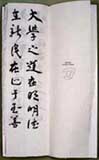 大學之道在明明德
在新民在止于至善